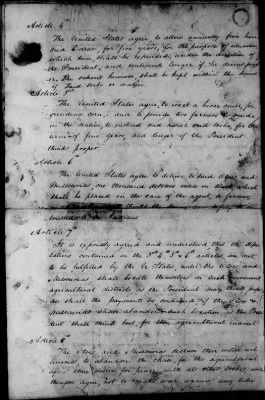 Article 4
The United States agree to allow annually five hundred Dollars, for five years, for the purpose of education
which sum shall be expended under the direction of
the President, and continued longer if he deems proper
The schools however, shall be kept within the limits
of said tribe or nation
Article 5
The United States agree to erect a horse mill for
grinding corn, and to provide two farmers to reside
in the nation to instruct and assist said tribe, for the
term of five years, and longer if the President
thinks proper
Article 6
The United States agree to deliver to said Otoes and
Missourias, one thousand dollars value in stock which
shall be placed in the care of the agent, or farmer
Article 7
It is expressly agreed and understood that the stipulations contained in the 3d 4th 5th & 6th articles are not
to be fulfilled by the U. States, until the Otoes and
Missourias shall locate themselves in such
agricultural districts as the President may think proper
nor shall the payments be continued if the Otoes &
Missourias shall abandon such location as the President shall think best for their agricultural interest
Article 8
The Otoes and Missourias declare their entire willingness to abandon the chase for the agricultural
life their desire for peace with all other tribes, and
therefore agree, not to make war against any tribe